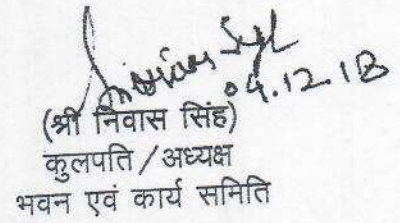 04.12.18
(श्री निवास सिंह)
कुलपति / अध्यक्ष
भवन एवं कार्य समिति